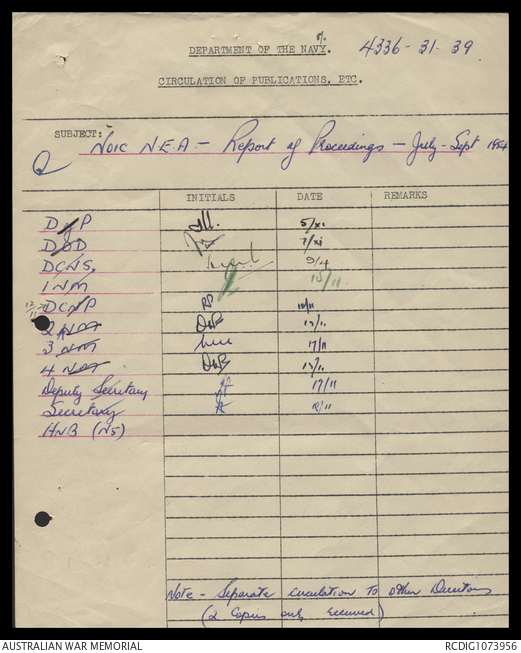 DEPARTMENT OF THE NAVY. 4336-31-39
CIRCULATION OF PUBLICATIONS, ETC.
SUBJECT: NOIC N.E.A - Report of Proceedings - July-Sept 1954
INITIALS DATE REMARKS
5/xi
7/xi
DCNS.
1NM 10/11
DCNP 12/11
2NM
3 NM 17/11
4 NM
Deputy Secretary 17/11
Secretary 18/11
HNB (NS)
Note - Separate circulation to other Directors
(2 Copies only received)
AUSTRALIAN WAR MEMORIAL RCDIG1073956